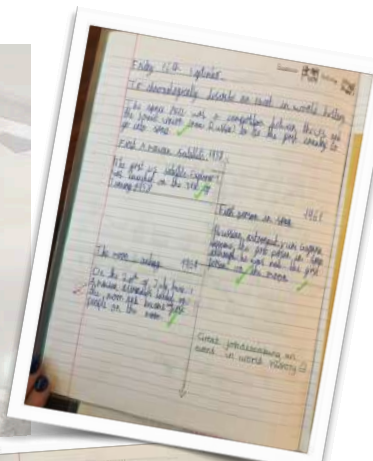 Friday 16th September
To chronologically describe an event in world history
The space race was a competition between the US and
the Soviet Union (now Russia) to be the first country to
go into space
First American Satellite 1958
The first US satellite Explorer 1
was launched on the 31st of
January 1958
First person in space 1961
Russian astronaut Yuri Gagarin
became the first person in space
although he was not the first
person on the moon
The moon landing 1969
On the 20th of July
American astronauts landed on
the moon and became first
people on the moon
Great job describing an
event in world history